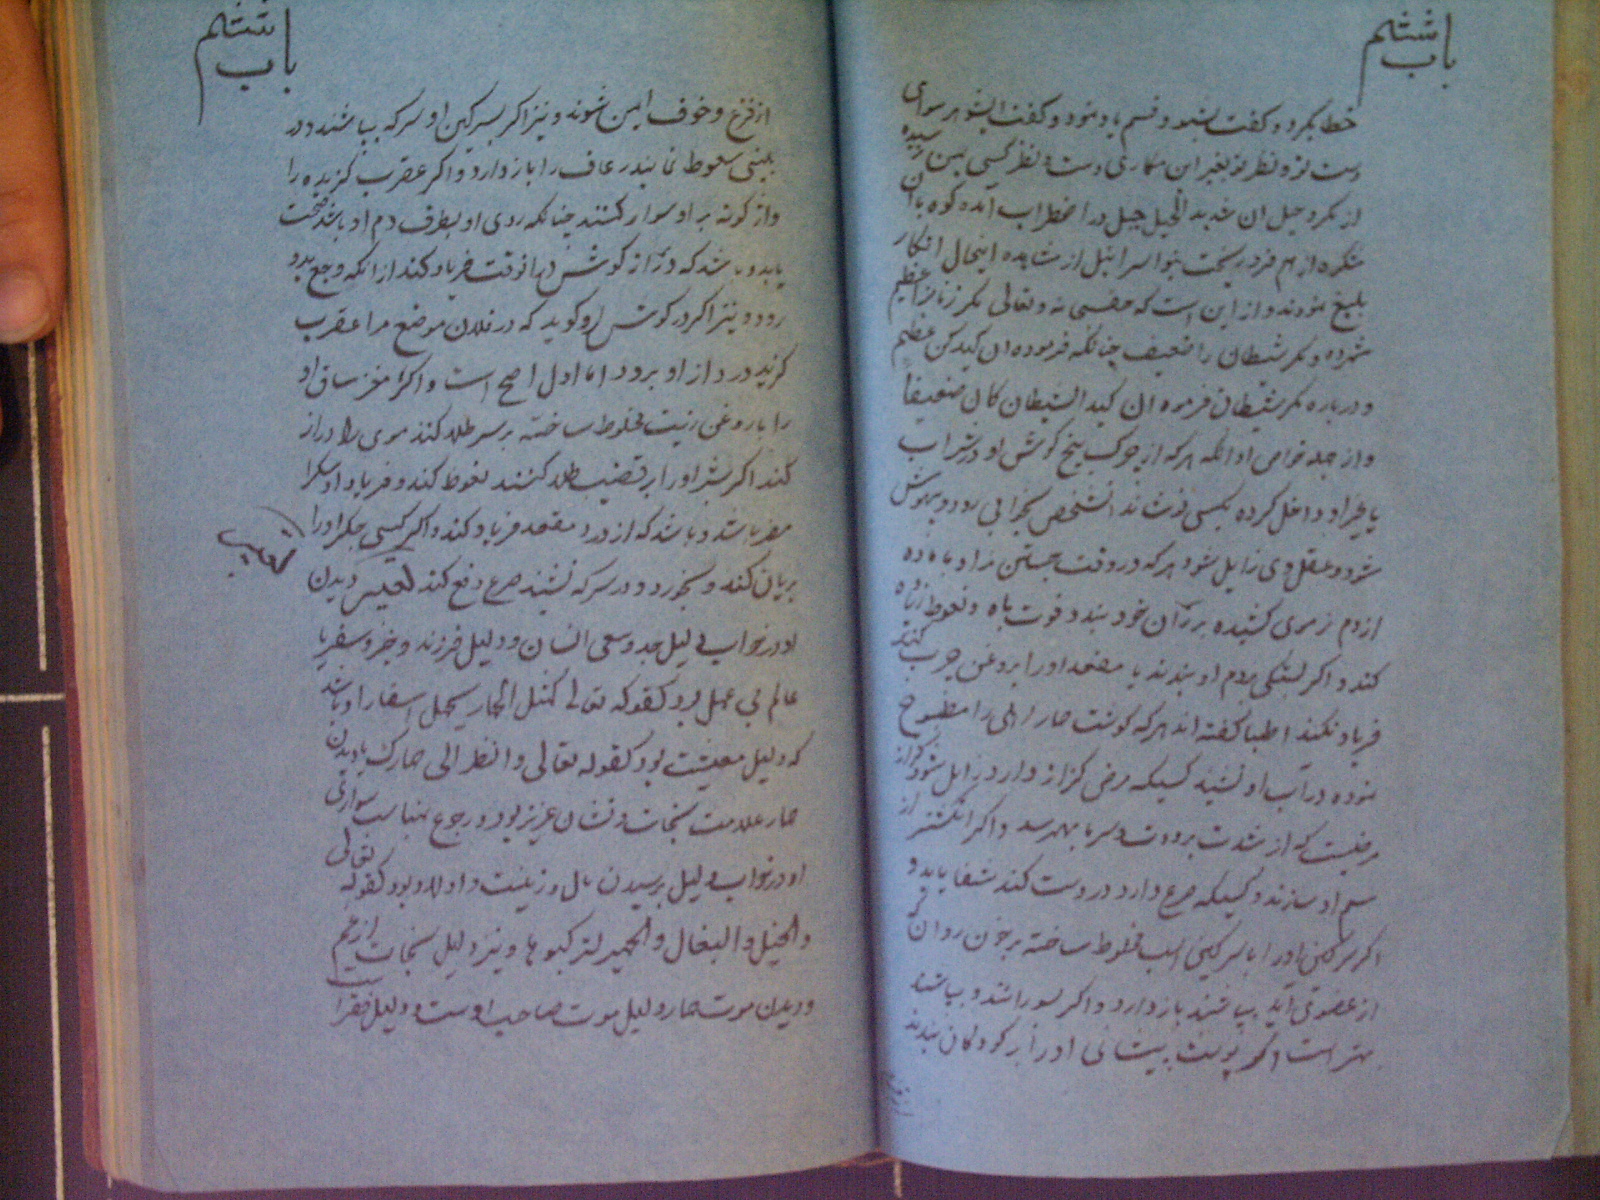 باب ششم
خطا بکرد و گفت بشو و قسم یاد نمود و گفت ایشوهر سوای
دست تو و نظر تو بغیر این مکاری دست و نظر کسی بمن نرسیده
از مکر و حیل آن شدید الحیل جبل در اضطراب آمده کوه با آن
شکوه از هم فرو ریخت بنو اسرائیل از مشاهده اینحال انکار
بلیغ نمودند و از این است که حقسبحانه و تعالی مکر زنانرا عظیم
شمرده و مکر شیطان را ضعیف چنانکه فرموده ان کیدکن عظیم
و درباره مکر شیطان فرموده ان کید الشیطان کان ضعیفا
و از جمله خواص او آنکه هر که از چرک بیخ گوش او در شراب
یا غیر او داخل کرده بکسی نوشاند آنشخص بخواب رود و بیهوش
شود و عقل وی زایل شود هر که در وقت جستن نر او با ماده
از دم نر موی کشیده بر ران خود بندد قوت باه و نعوظ زیاده
کند و اگر سنگی بدم او بندند یا مقعد او را بروغن چرب کنند
فریاد نکند اطبا گفته اند هر که گوشت حمار اهلی را مطبوخ
نموده در آب او نشیند کسیکه مرض کزاز دارد زایل شود کزاز
مرضیست که از شدت برودت و سرما بهم رسد و اگر انگشتر از
سم او سازند و کسیکه صرع دارد در دست کند شفا یابد و
اگر سرگین او را با سرگین اسب مخلوط ساخته بر خون روان که
از عضوی آید بپاشند باز دارد و اگر بسوزانند و بپاشند
بهتر است و اگر پوست پیشانی او را بر کودکان بندند
باب ششم
از فزع و خوف ایمن شوند و نیز اگر بسرگین او سرکه بپاشند و در
بینی سعوط نمایند رعاف را باز دارد و اگر عقرب گزیده را
واژگونه بر او سوار کنند چنانکه روی او بطرف دم او باشد صحت
یابد و باشد که دراز گوش در آنوقت فریاد کند از آنکه وجع بدو
رود و نیز اگر در گوش او گوید که در فلان موضع مرا عقرب
گزید درد از او برود اما اول اصح است و اگر مغز ساق او
را با روغن زیت مخلوط ساخته بر سر طلا کند موی را دراز
کند اگر شیر او را بر قضیب طلا کنند نعوظ کند و فریاد او سگ را
مضر باشد و باشد که از درد مقعد فریاد کند و اگر کسی جگر او را
بریان کند و بخورد و در سرکه نشیند صرع دفع کند تعبیر دیدن
تعبیر
او در خواب دلیل جد و سعی انسان و دلیل فرزند و خیر و سفر یا
عالم بی عمل بود کقوله تعالی کمثل الحمار یحمل اسفارا و باشد
که دلیل معیشت بود کقوله تعالی وانظر الی حمارک یا دیدن
حمار علامت نجات و نشان عزیز بود و رجوع بمناسب سواری
او در خواب دلیل برسیدن مال و زینت و اولاد بود کقوله تعالی
والخیل والبغال والحمیر لترکبوها و نیز دلیل نجات از غم است
و دیدن موت حمار دلیل موت صاحب اوست و دلیل فقر او